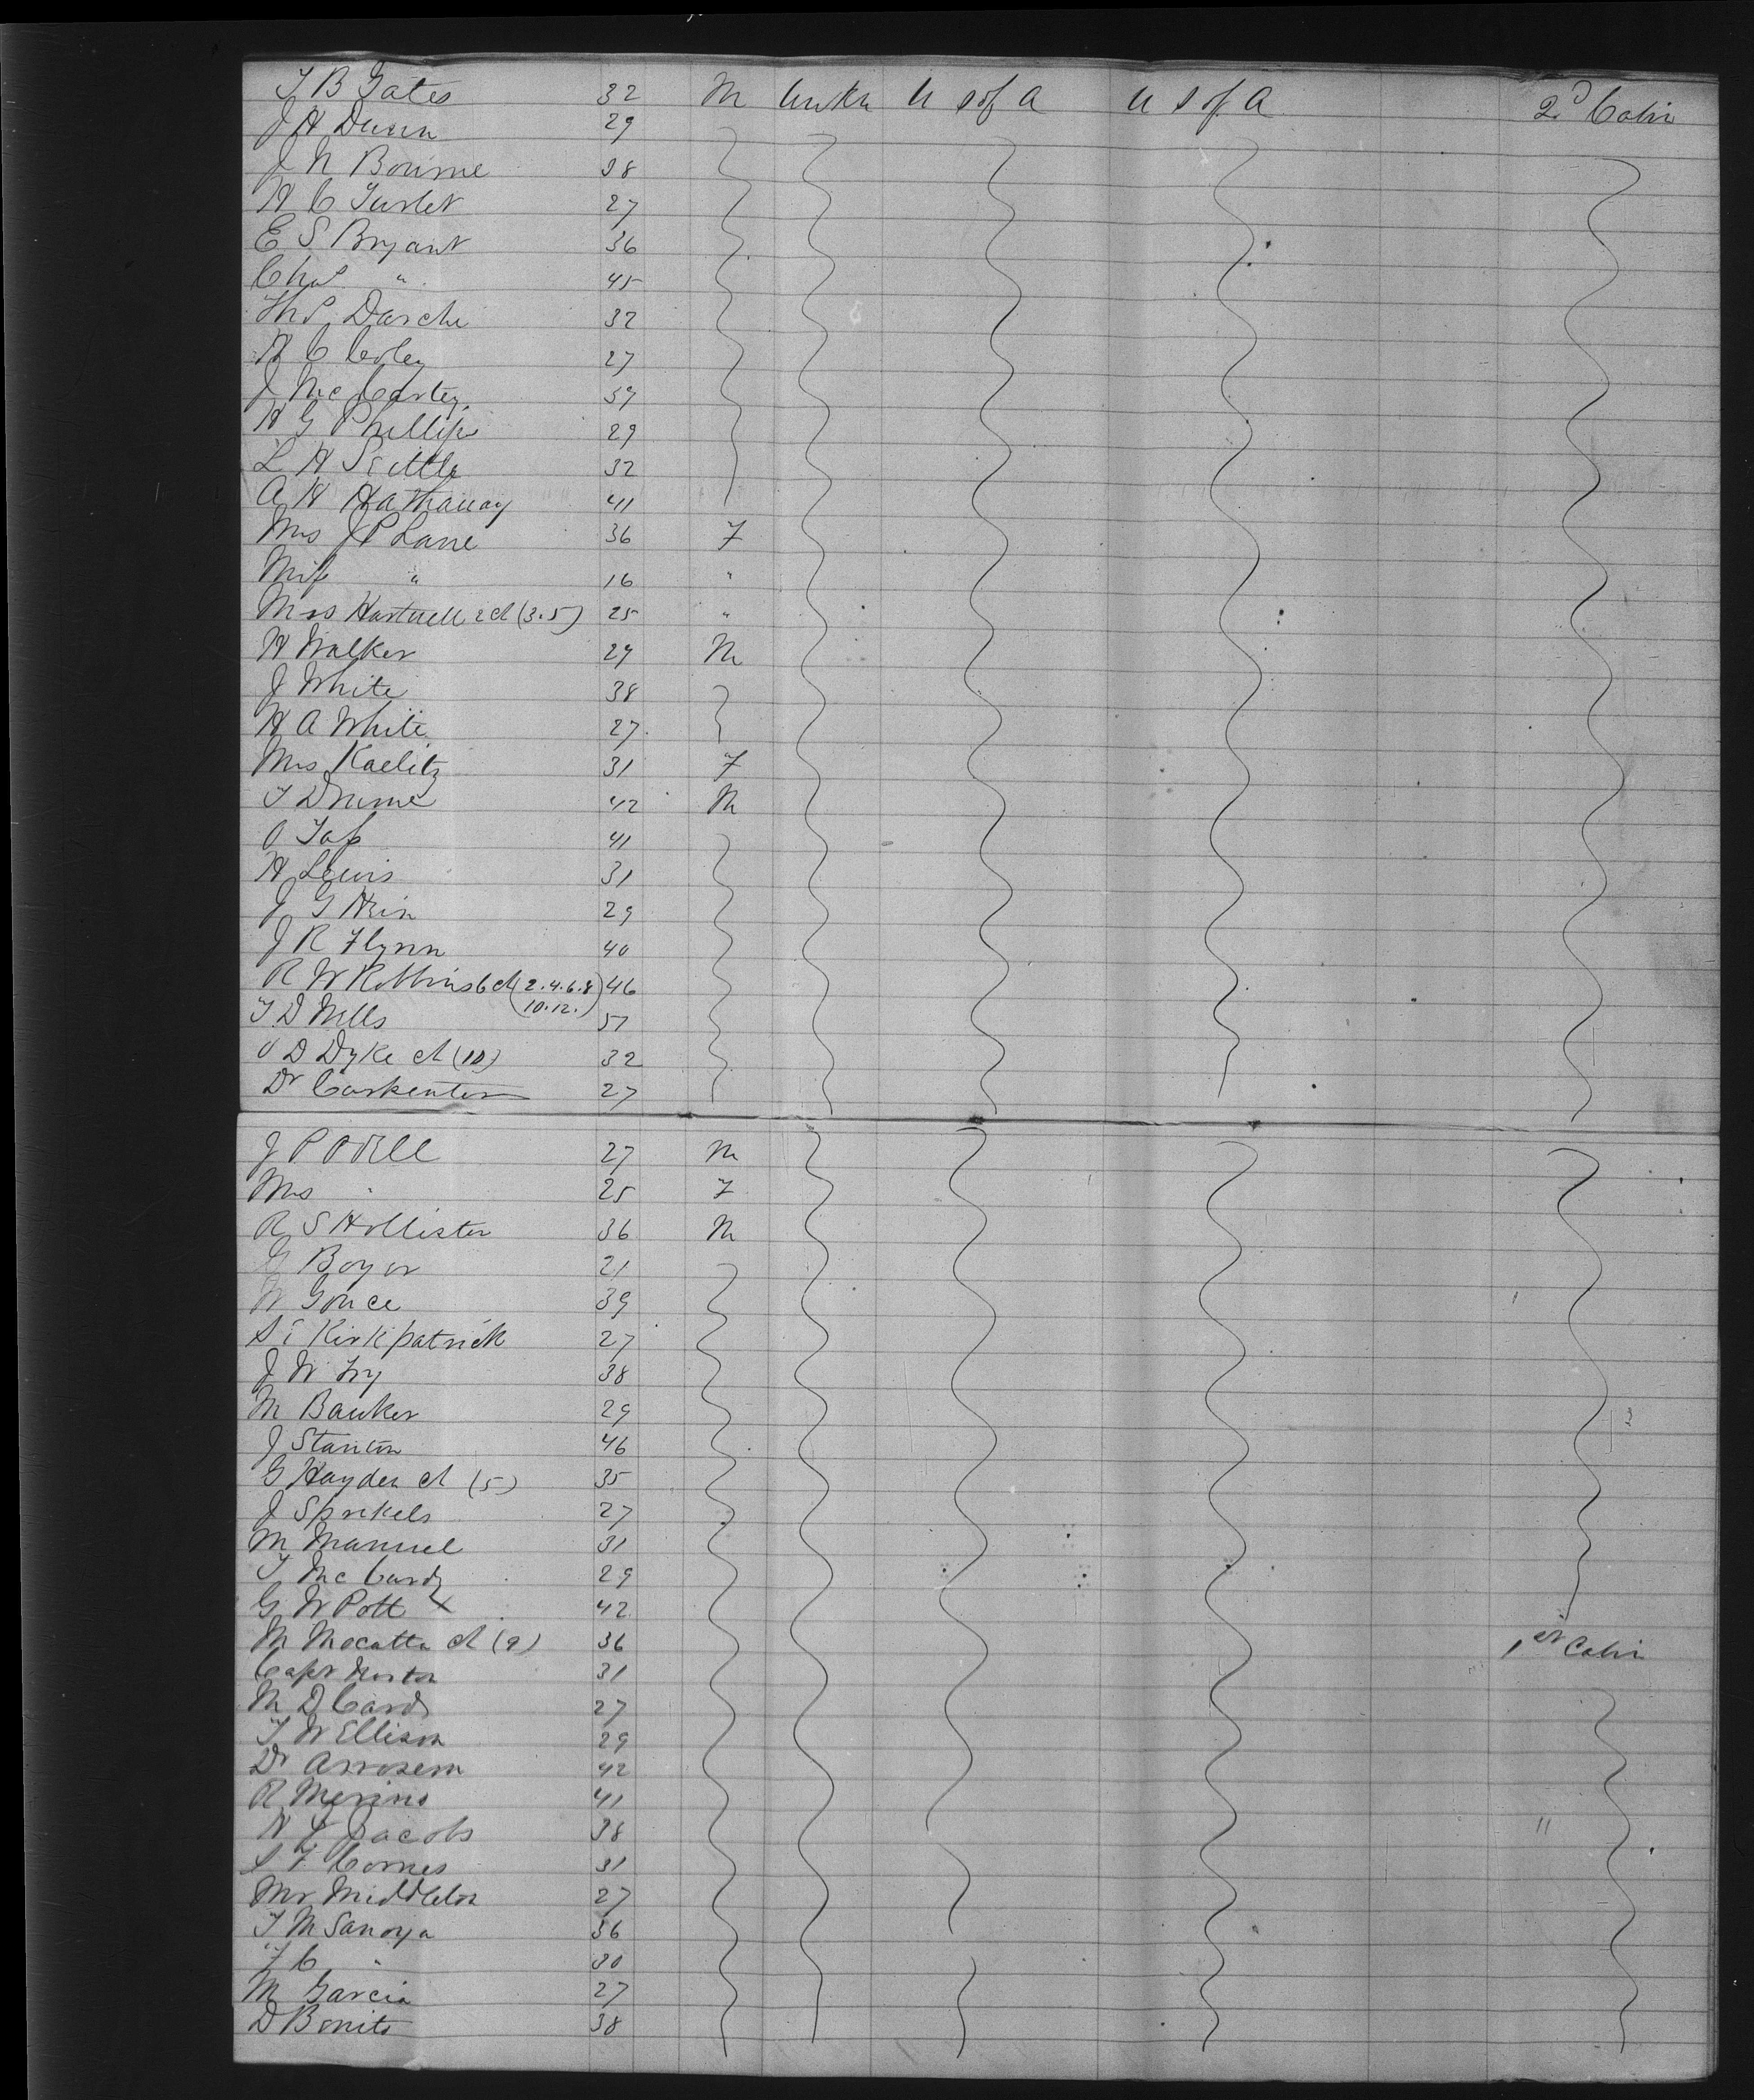 T B Gates 32 M Unkn U S of A U S of A 2d Cabin
J H Dunn 29
J N Bourne 38
H C 27
E S Bryant 36
Chas " 45
Thos Darche 32
H C Coley 27
J McCartey 39
H G Phillips 29
L H Settle 32
A H Hathaway 41
Mrs J P Lane 36 F
Miss " 16 "
Mrs Hartnell 2 ch (3.5) 25 "
H Walker 29 M
J White 38
H A White 27
Mrs Kaelitz 31 F
T D 42 M
O Taft 41
H Lewis 31
J G 29
J R Flynn 40
R W Robbins 6 ch (2.4.6.8 46
10.12.)
T D Mells 51
O D Dyke ch (10) 32
Dr Carpenter 27
J P Odell 27 M
Mrs " 25 F
R S Hollister 36 M
G Boyer 21
W Gonce 39
S E Kirkpatrick 27
J W Fry 38
M Banker 29
J Stanton 46
G Hayden ch (5) 35
J Sprekels 27
M Manuel 31
T McCurdy 29
G W Pott X 42
M Mocatta ch (9) 36 1st Cabin
Capt Norton 31
M D Card 27
T W Ellison 29
Dr Arrosem 42
R Merino 41
N L Jacobs 38 "
S F Cornes 31
Mr Middleton 27
T M Sanoya 36
F C " 30
M Garcia 27
D Bonito 38